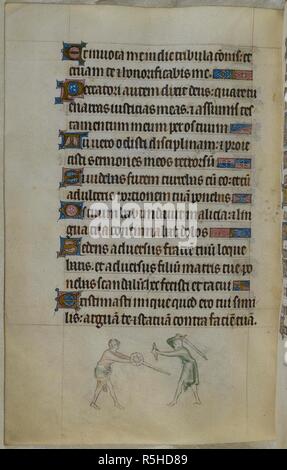 Et invoca me in die tribulaconis: et
eruam te & honorificabis me.
Peccatori autem dixit deus: quare tu
enarras iusticias meas: & assumis tes
tamentum meum per os tuum
Tu vero odisti disciplinam: & proie
cisti sermones meos retrorsum
Si videbas furem currebas cum eo: et cum
adulteris portionem tuam ponebas
Os tuum habundavit malicia: & lin
gua tua concinnabat dolos
Sedens adversus fratrem tuum loque
baris: et adversus filium matris tue po
nebas scandalum: hec fecisti et tacui
Existimasti inique quod ero tui simi
lis: arguam te & statuam contra faciem tuam.
alamy
www.alamy.com - R5HD89